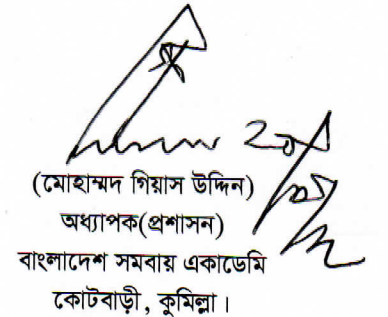 (মোহাম্মদ গিয়াস উদ্দিন)
অধ্যাপক(প্রশাসন)
বাংলাদেশ সমবায় একাডেমি
কোটবাড়ী, কুমিল্লা।